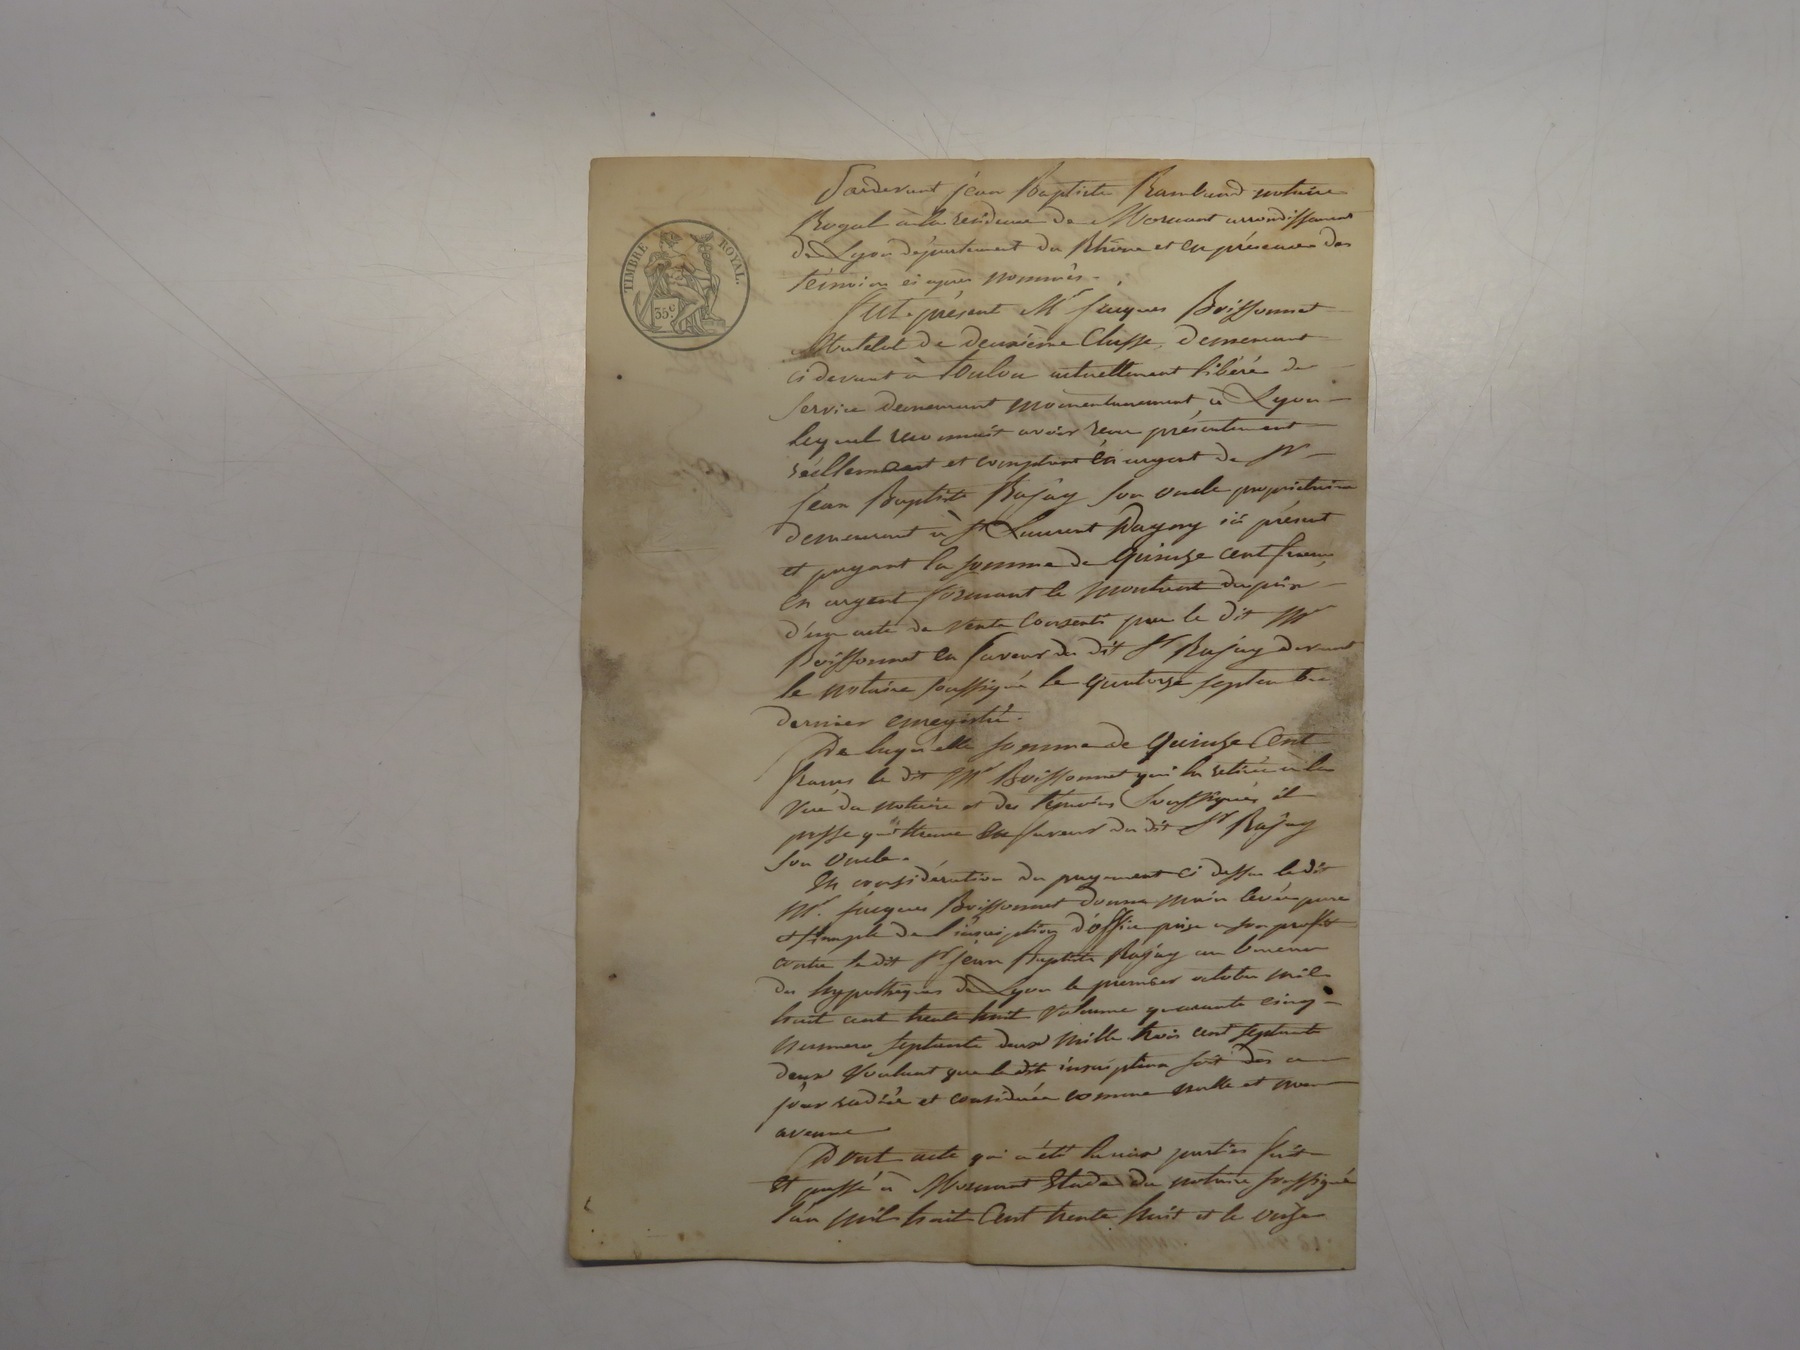 TIMBRE ROYAL.
35c
Pardevant jean Baptiste Rambaud notaire
Royal à la residence de Mornant arrondissement
de Lyon département du Rhône et en présence des
témoins ci après nommés.
Fut présent Mr jacques Boissonnet
Matelot de deuxième Classe, demeurant
ci devant à toulon actuellement libéré du
service demeurant momentanement à Lyon
lequel reconnait avoir reçu présentement
réellement et comptant en argent de Sr
jean Baptiste Bajay son oncle propriétaire
demeurant à St Laurent Dagny ici présent
et payant la somme de Quinze cent francs
en argent formant le montant du prix
d'un acte de vente consenti par le dit Mr
Boissonnet en faveur du dit Sr Bajay devant
le notaire soussigné le Quatorze septembre
dernier enregistré.
De laquelle somme de Quinze Cent
francs le dit Mr Boissonnet qui l'a retirée à la
vue du notaire et des témoins soussignés il
passe quittance en faveur du dit Sr Bajay
son oncle.
En considération du payement ci dessus le dit
Mr. jacques Boissonnet donne main levée pure
et simple de l'inscription d'office prise à son profit
contre le dit Sr jean Baptiste Bajay au bureau
des hypothèques de Lyon le premier octobre mil
huit cent trente huit volume quarante cinq
numero septante deux mille trois cent septante
deux voulant que la dite inscription soit dès ce
jour radiée et considérée comme nulle et non
avenue
Dont acte qui a été lu aux parties fait
et passé à Mornant Etude du notaire soussigné
l'an mil huit Cent trente huit et le onze